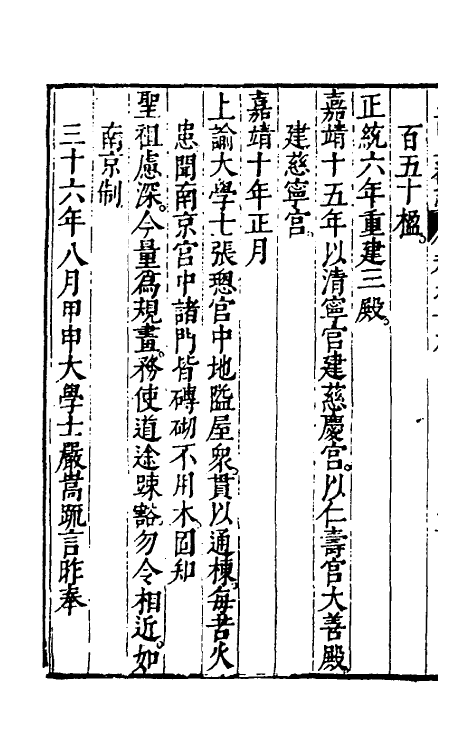 百五十楹。
正統六年重建三殿。
嘉靖十五年以清寧宮建慈慶宮。以仁壽宮大善殿
建慈寧宮。
嘉靖十年正月
上諭大學士張璁宮中地隘屋衆。貫以通棟。每苦火
患聞南京宮中諸門皆磚砌不用木。因知
聖祖慮深。今量爲規畫。務使道途踈豁。勿令相近。如
南京制
三十六年八月甲申大學士嚴嵩疏言昨奉